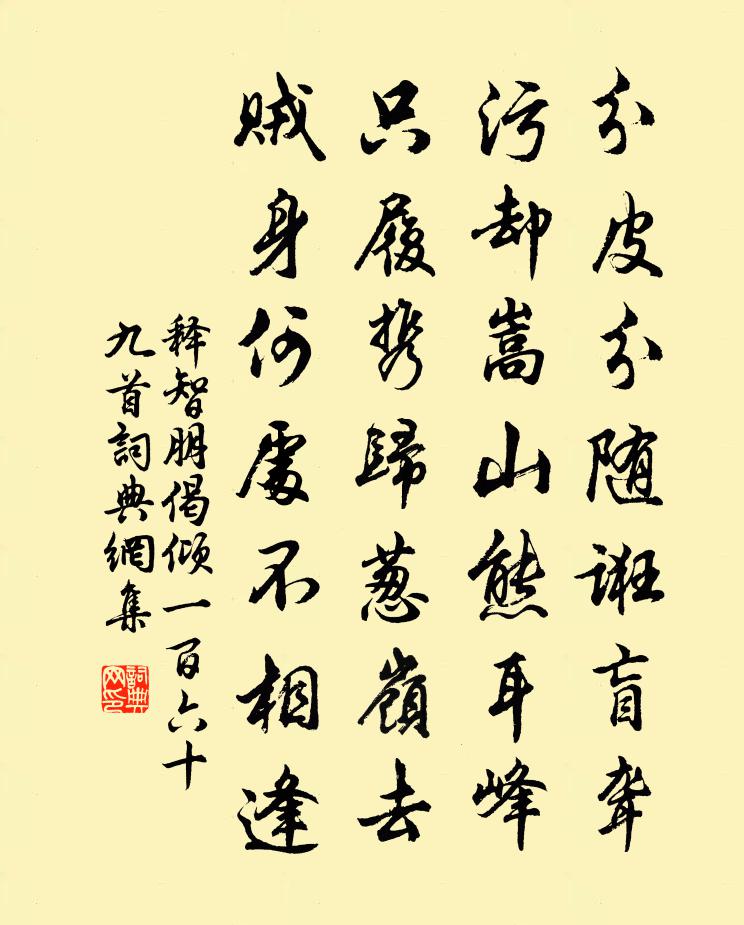 分皮分随誑盲聋
污却嵩山熊耳峰
只履携歸葱嶺去
贼身何處不相逢
释智朋偈倾一百六十
九首詞典網集
詞典網印